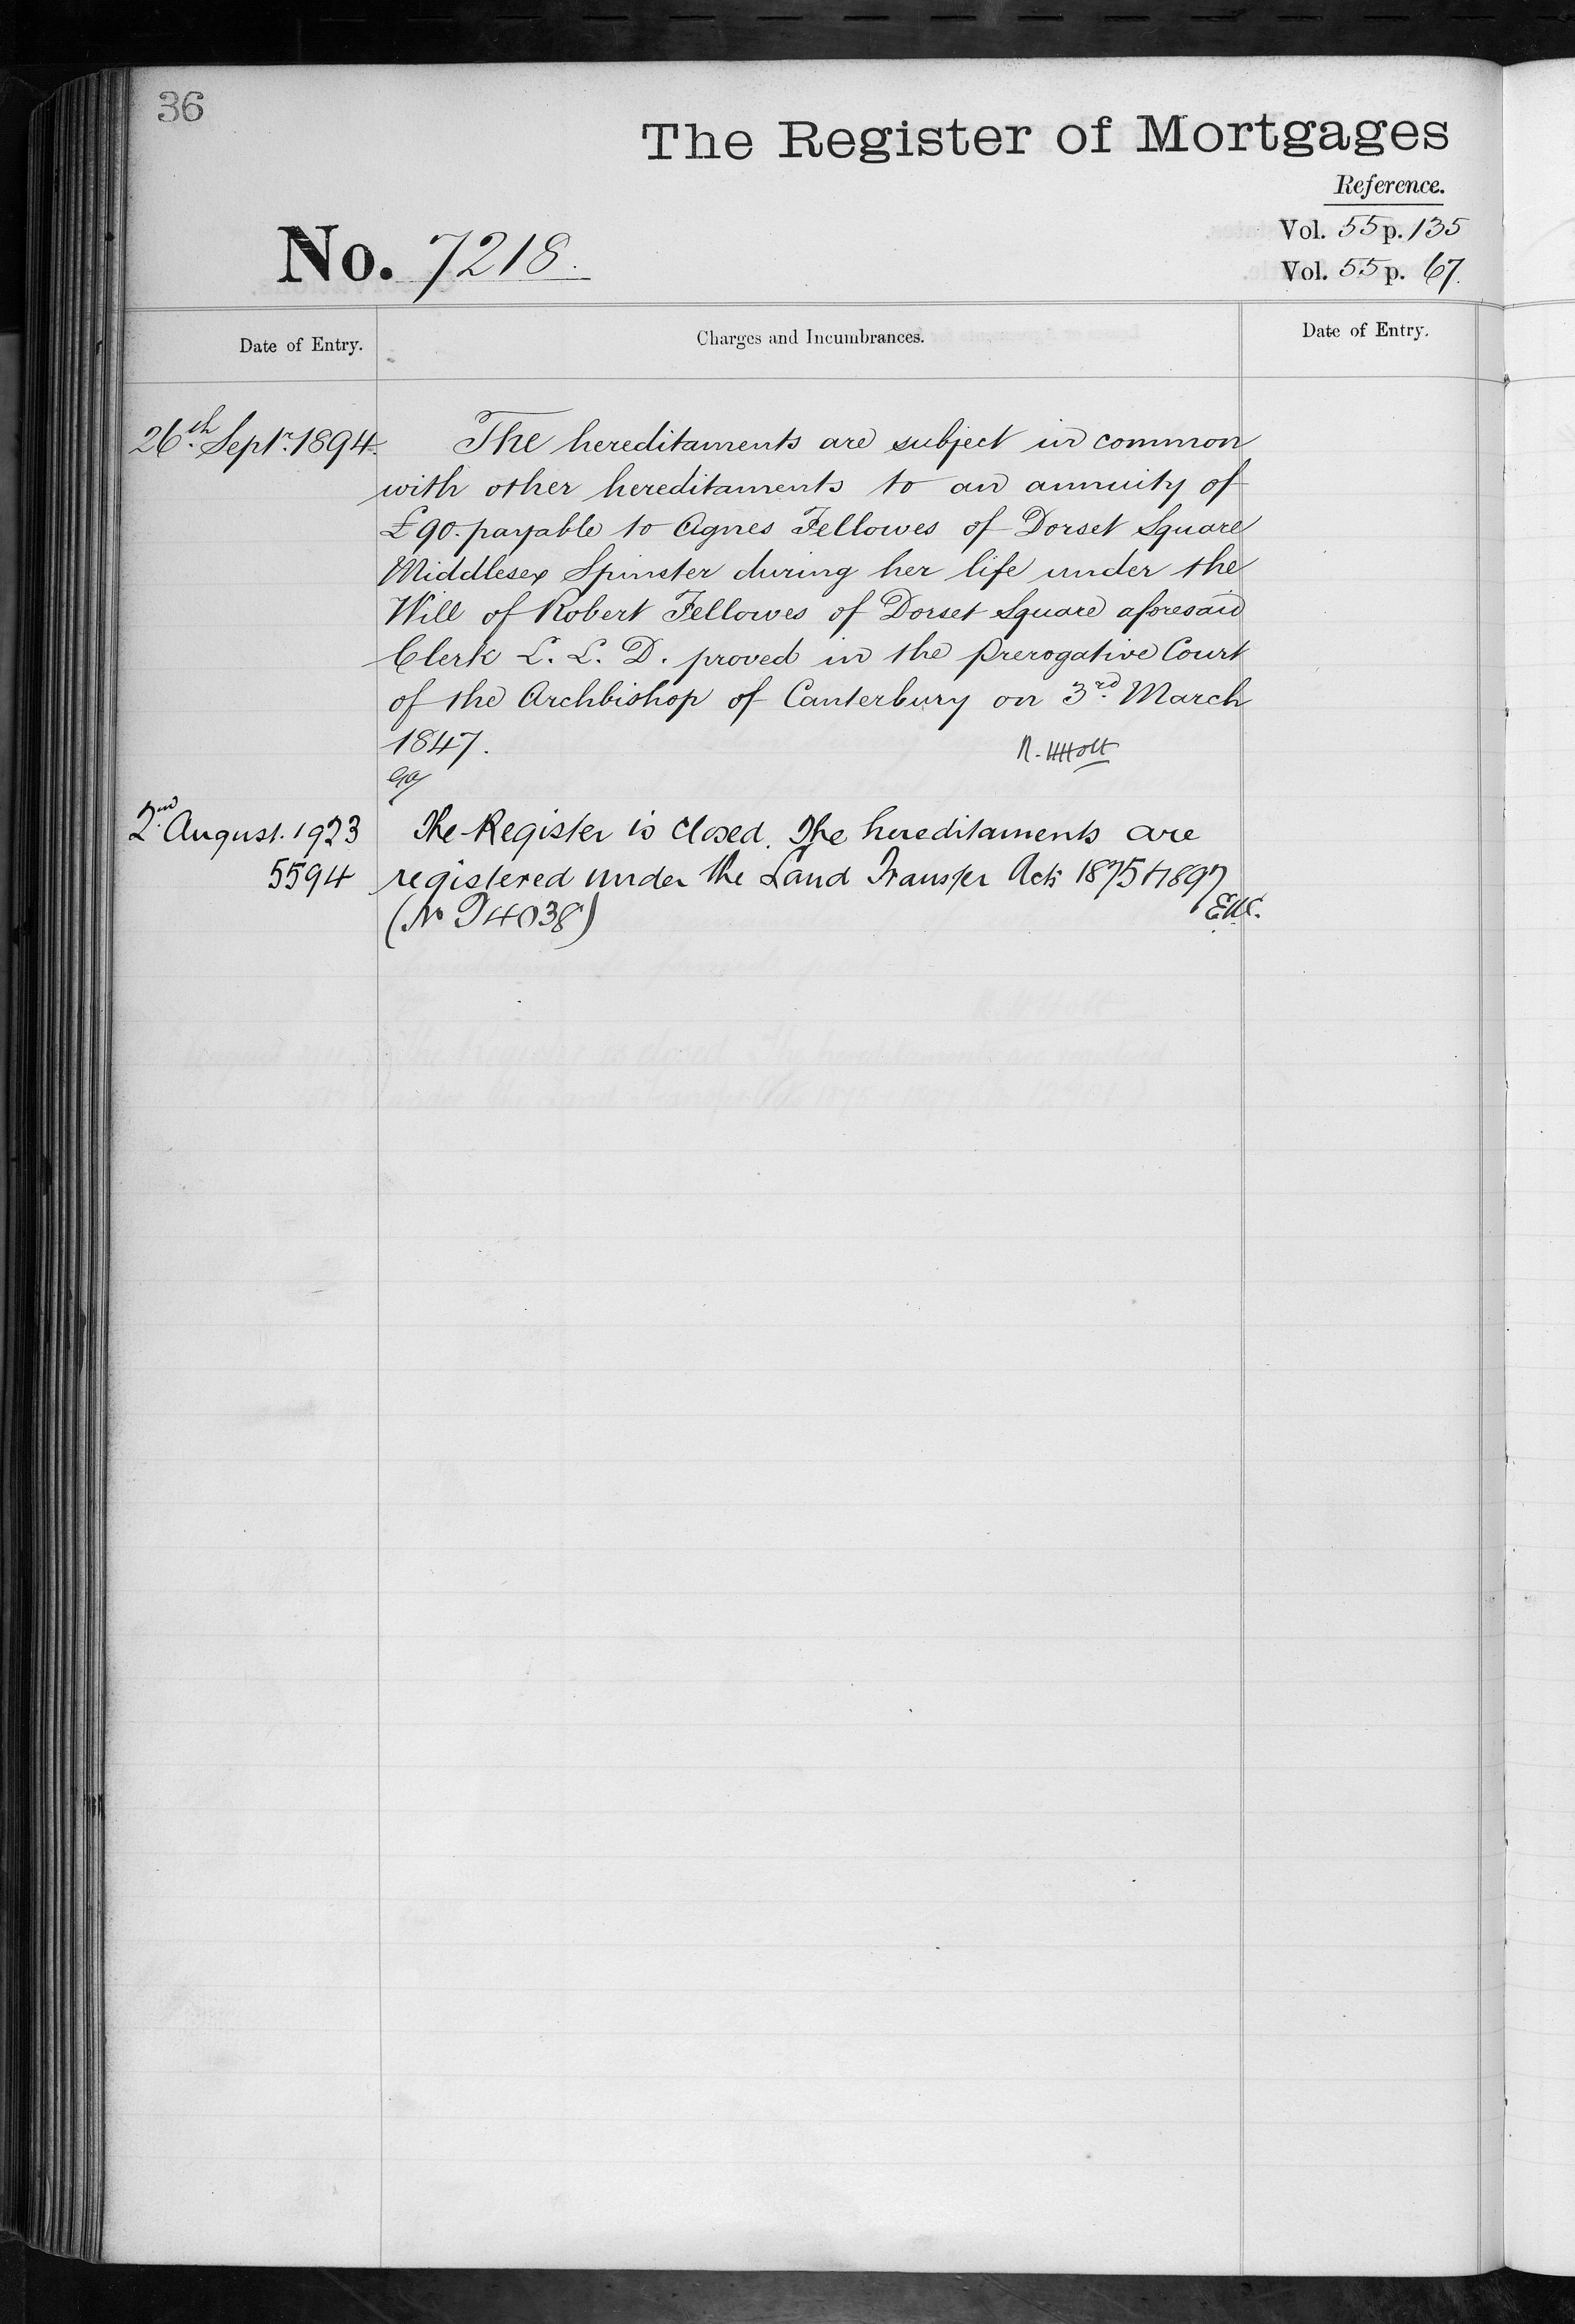 36
The Register of Mortgages
Reference.
Vol. 55 p. 135
No. 7218.
Vol. 55 p. 67.
Date of Entry.
Charges and Incumbrances.
Date of Entry.
26th Septr. 1894.
The hereditaments are subject in common
with other hereditaments to an annuity of
£90. payable to Agnes Fellowes of Dorset Square
Middlesex Spinster during her life under the
Will of Robert Fellowes of Dorset Square aforesaid
Clerk L. L. D. proved in the Prerogative Court
of the Archbishop of Canterbury on 3rd March
1847.
R. H Holt
2nd August. 1923
The Register is closed. The hereditaments are
5594
registered under the Land Transfer Acts 1875 & 1897
(No 4038)